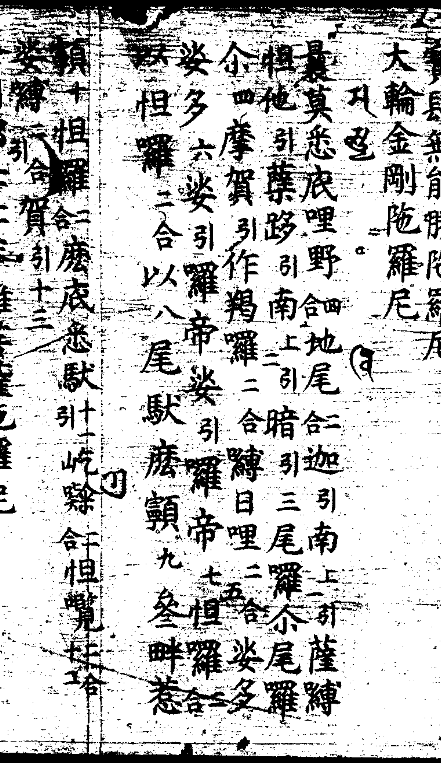 無能勝陀羅尼
大輪金剛陀羅尼
지
曩莫悉底哩野四合地尾二合迦引南上一引薩嚩
怛他引蘖跢引南上二引暗引三尾囉尒尾囉
尒四摩賀引作羯囉二合嚩日哩二合五娑多
娑多六娑引囉帝娑引囉帝七怛囉二合
怛囉二合以八尾馱麽顐九叄畔惹
顐十怛囉二合麽底悉馱引十一屹㘑二合怛㘕二合十二
娑嚩二合引賀引十三